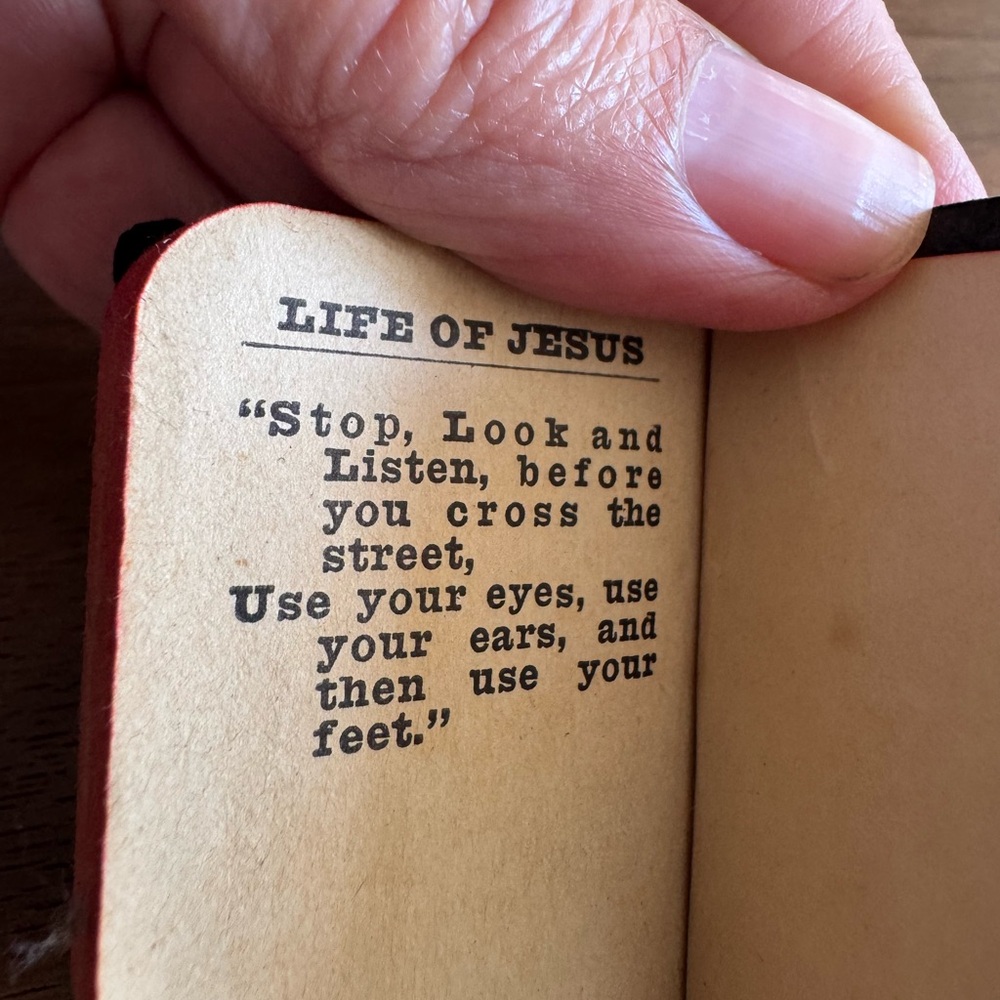 LIFE OF JESUS
“Stop, Look and
Listen, before
you cross the
street,
Use your eyes, use
your ears, and
then use your
feet.”